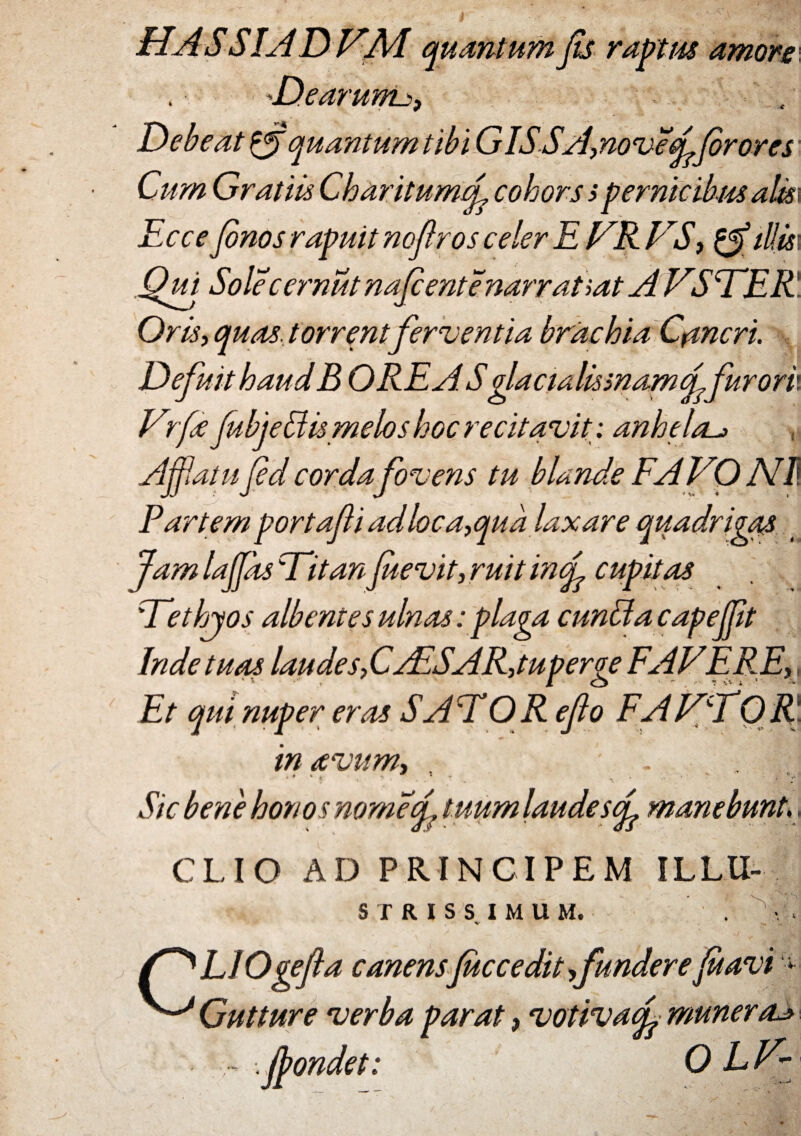 HASSIADVM quantum ſis raptus amore
Dearum,
Debeat & quantum tibi GISSA, novēq; ſorores
Cum Gratiis Charitumq; cohors; pernicibus alis
Ecce ſonos rapuit noſtros celer EVRVS, & illis
Qui Solē cernūt naſcentē narrat at AVSTER
Oris, quas torrent ferventia brachia Cancri.
Defuit haud BOREAS glacialis; namq; furori
Vrſæ ſubjectis melos hoc recitavit: anhela
Afflatu ſed corda fovens tu blande FAVONI
Partem portaſti ad loca, quà laxare quadrigas
Jam laſſas Titan ſuevit, ruit inq; cupitas
Tethyos albentes ulnas: plaga cuncta capeſſit
Inde tuas laudes, CÆSAR, tu perge FAVERE,
Et qui nuper eras SATOR eſto FAVTOR
in ævum,
Sic benè honos nomēq; tuum laudesq; manebunt.
CLIO AD PRINCIPEM ILLU-
STRISSIMUM.
CLIO geſta canens ſuccedit, fundere ſuavi
Gutture verba parat, votivaq; munera
ſpondet:
O LV-